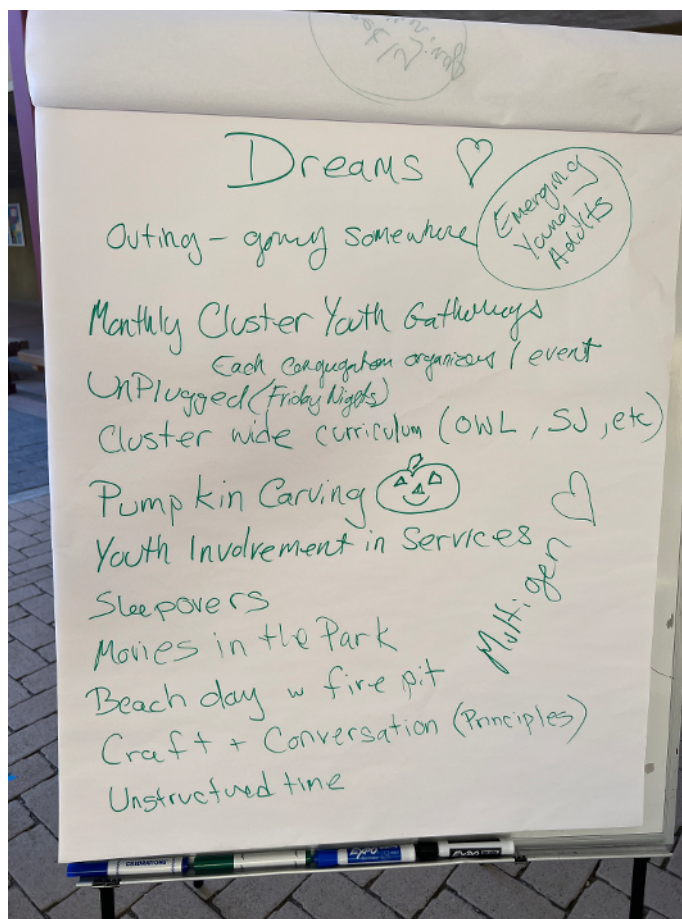 Dreams ♡
Emerging
Young
Adults
Outing – going somewhere
Monthly Cluster Youth Gatherings
Each congregation organizes 1 event
UnPlugged (Friday Nights)
Cluster wide curriculum (OWL, SJ, etc)
Pumpkin Carving
Youth Involvement in Services
Multigen ♡
Sleepovers
Movies in the Park
Beach day w fire pit
Craft + Conversation (Principles)
Unstructured time
EXPO